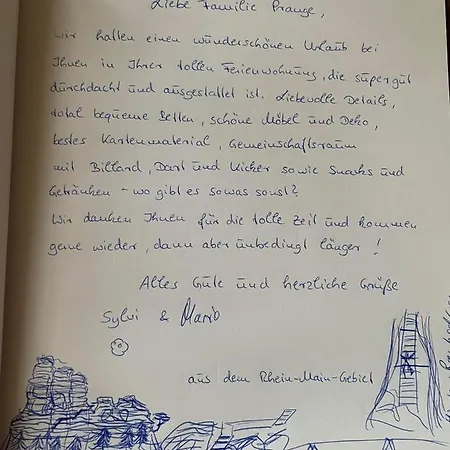 Liebe Familie Prange,
wir hatten einen wunderschönen Urlaub bei
Ihnen in Ihrer tollen Ferienwohnung, die supergut
durchdacht und ausgestattet ist. Liebevolle Details,
total bequeme Betten, schöne Möbel und Deko,
bestes Kartenmaterial, Gemeinschaftsraum
mit Billard, Dart und Kicker sowie Snacks und
Getränken - wo gibt es sowas sonst?
Wir danken Ihnen für die tolle Zeit und kommen
gerne wieder, dann aber unbedingt länger!
Alles Gute und herzliche Grüße
Sylvi & Mario
aus dem Rhein-Main-Gebiet